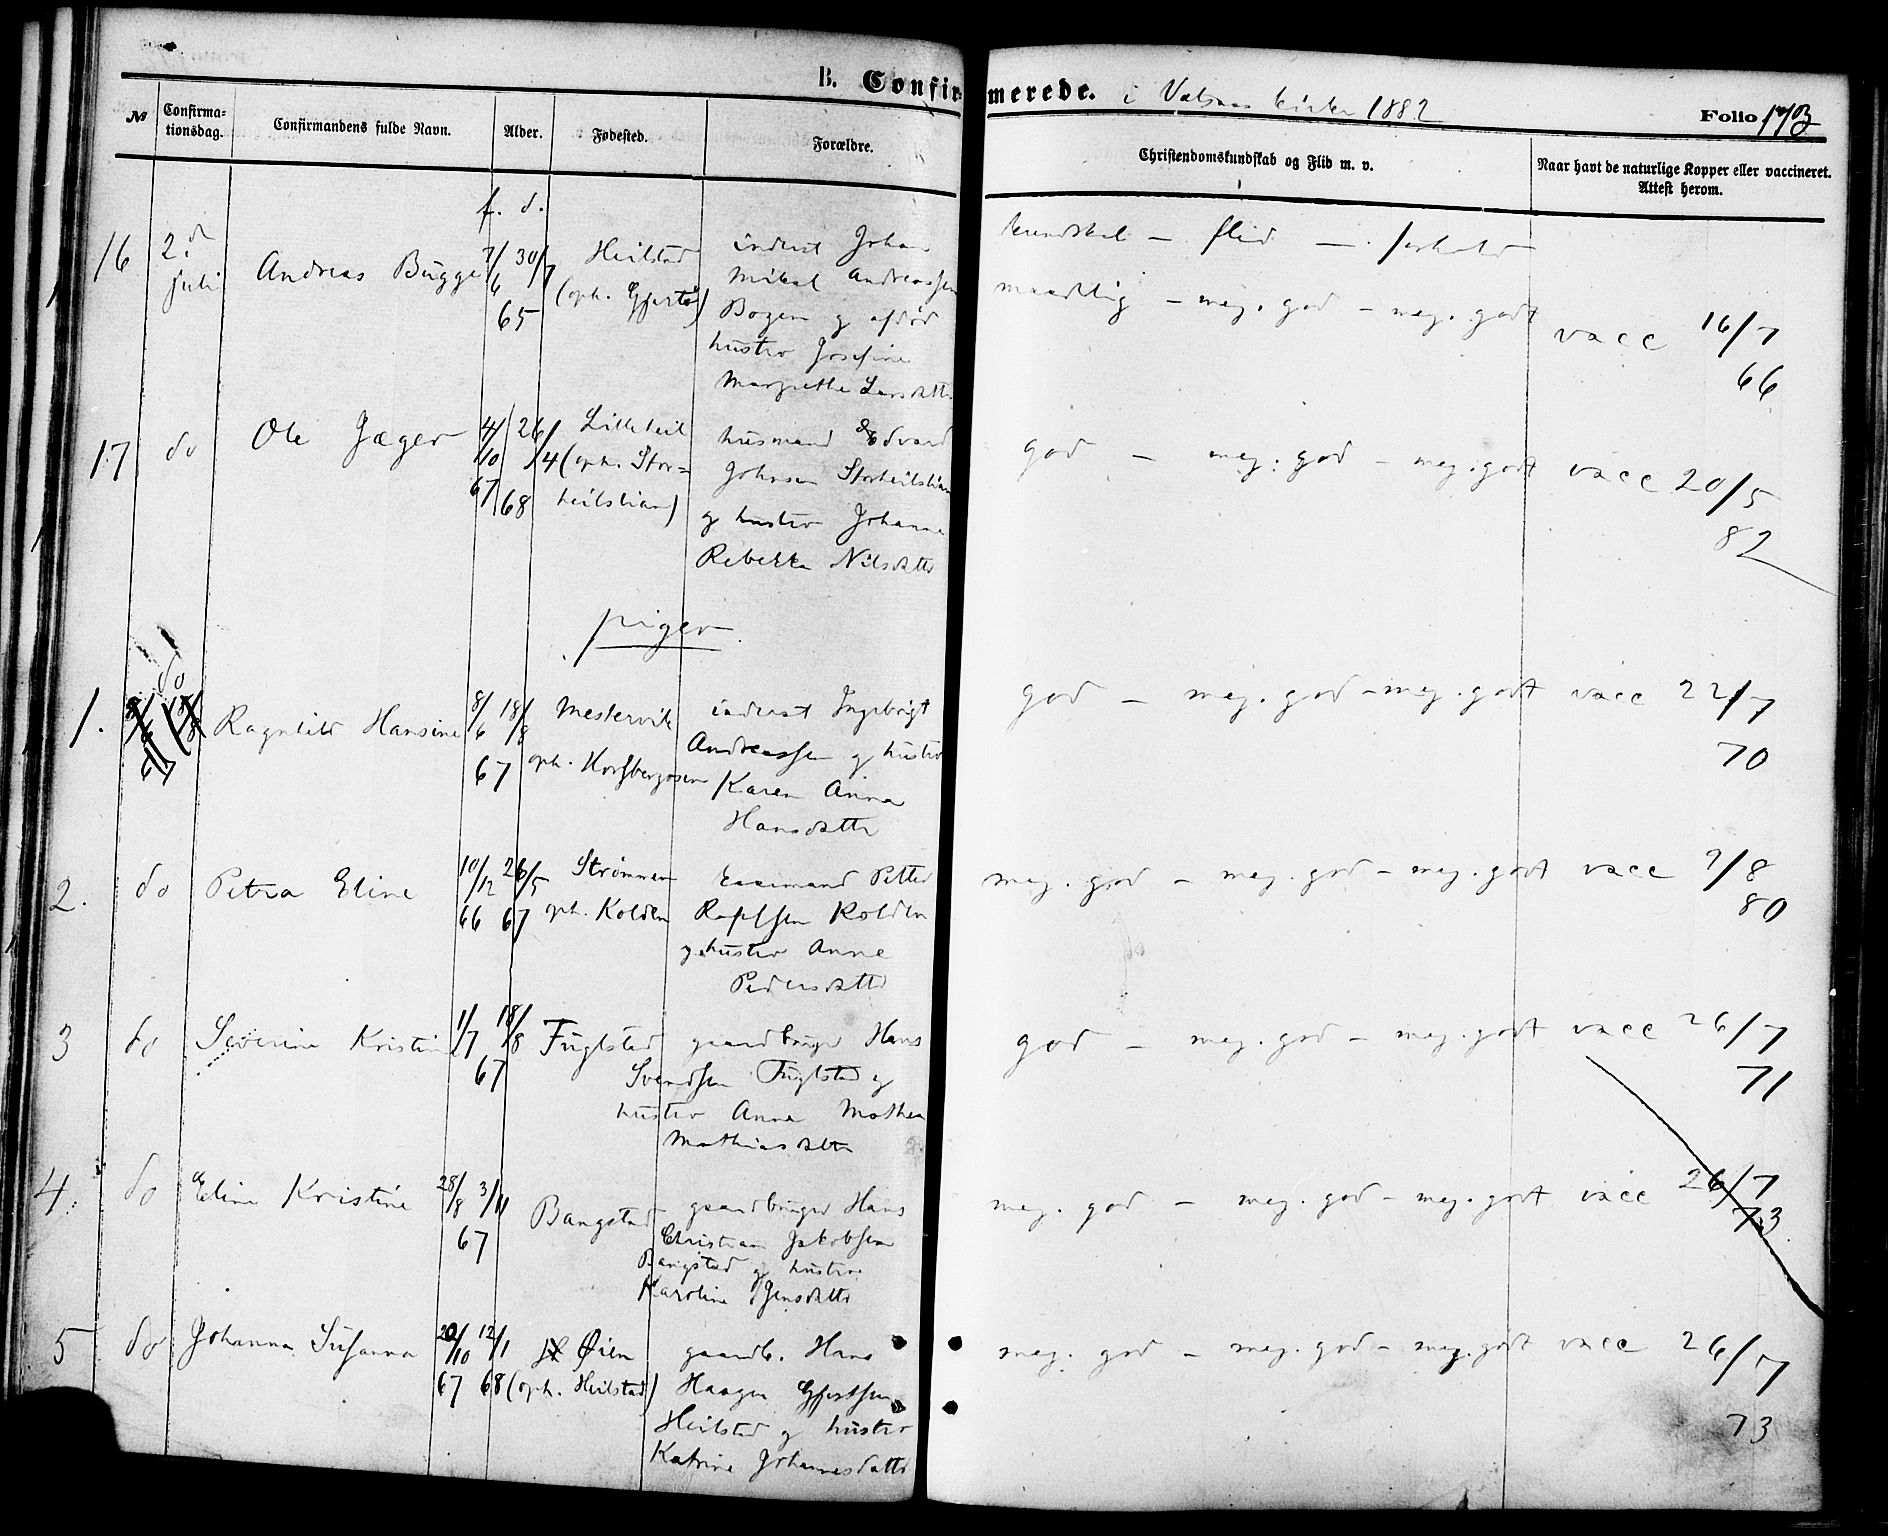 B. Confirmerede. i Valsnes kirke 1882
Folio 173
№
Confirma-
tionsdag.
Confirmandens fulde Navn.
Alder.
Fødested.
Forældre.
Christendomskundskab og Flid m. v.
Naar havt de naturlige Kopper eller vaccineret.
Attest herom.
f. d.
kundskab – flid – forhold
16
2d
juli
Andreas Bugge
7/6 30/7
65
Heilstad
(oph. Gjertø)
inderst Johan
Mikal Andreassen
Bogen og afdød
hustro Josefine
Margrethe Larsdatter
maadelig – meg. god – meg. godt
vacc 16/7
66
17
do
Ole Jæger
4/10 26/4
67 68
Lilleheil
(oph. Stor=
heilslian)
husmand Edvard
Johnsen Storheilslian
og hustro Johanna
Rebekka Nilsdatter
god – meg. god – meg. godt
vacc 20/5
82
piger
1.
do
Ragnhild Hansine
8/6 18/8
67
Mestervik
oph. Korsbergosen
inderst Ingebrigt
Andreassen og hustro
Karen Anna
Hansdatter
god – meg. god – meg. godt
vacc 22/7
70
2.
do
Petra Eline
10/12 26/5
66 67
Strømmen
oph. Kolden
Petter
Kolden
og hustro Anne
Pedersdatter
meg. god – meg. god – meg. godt
vacc 9/8
80
3
do
Severine Kristine
1/7 18/8
67
Fuglstad
gaardbruger Hans
Svendsen Fuglstad og
hustro Anna Mathea
Mathiasdatter
god – meg. god – meg. godt
vacc 26/7
71
4.
do
Eline Kristine
28/8 3/11
67
Bangstad
gaardbruger Hans
Christian Jakobsen
Bangstad og hustro
Karoline Jensdatter
meg. god – meg. god – meg. godt
vacc 26/7
73
5
do
Johanna Susanna
20/10 12/1
67 68
Øien
(oph. Heilstad)
gaardb. Hans
Haagen Gjertsen
Heilstad og hustro
Katrine Johannesdatter
meg. god – meg. god – meg. godt
vacc 26/7
73